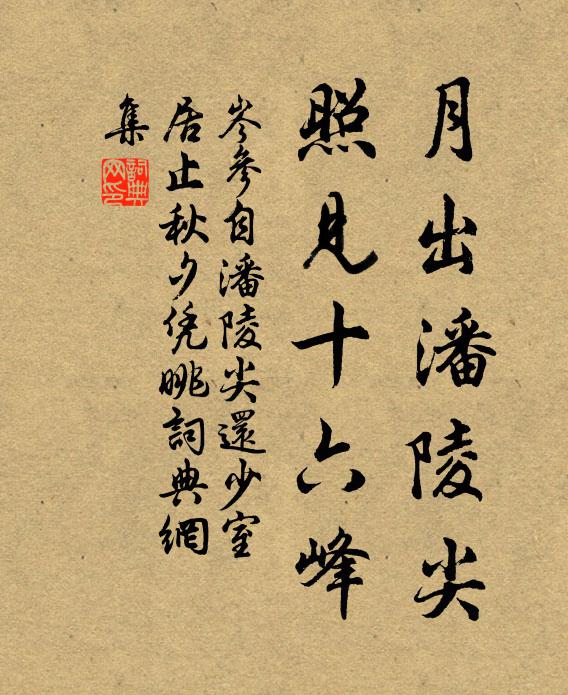 月出潘陵尖
照見十六峰
岑參自潘陵尖還少室
居止秋夕凭眺詞典網
集
詞典网印